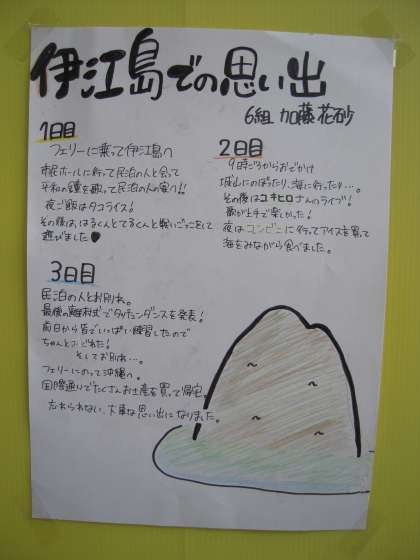 伊江島での思い出
6組 加藤 花砂
1日目
フェリーに乗って伊江島へ
村民ホールに行って民泊の人と会って
平和の鐘を歌って民泊の人の家へ!!
夜ご飯はタコライス!
その後は、はるくんとてるくんと戦いごっこをして
遊びました♥
2日目
9時ごろからおでかけ
城山にのぼったり、海に行ったり…。
その後はユキヒロさんのライブ!
歌が上手で楽しかった!
夜はコンビニに行ってアイスを買って
海をみながら食べました。
3日目
民泊の人とお別れ。
最後の離村式でタッチュンダンスを発表!
前日から皆でいっぱい練習したので
ちゃんとおどれた!
そしてお別れ…。
フェリーにのって沖縄へ。
国際通りでたくさんお土産を買って帰宅。
忘れられない、大事な思い出になりました。